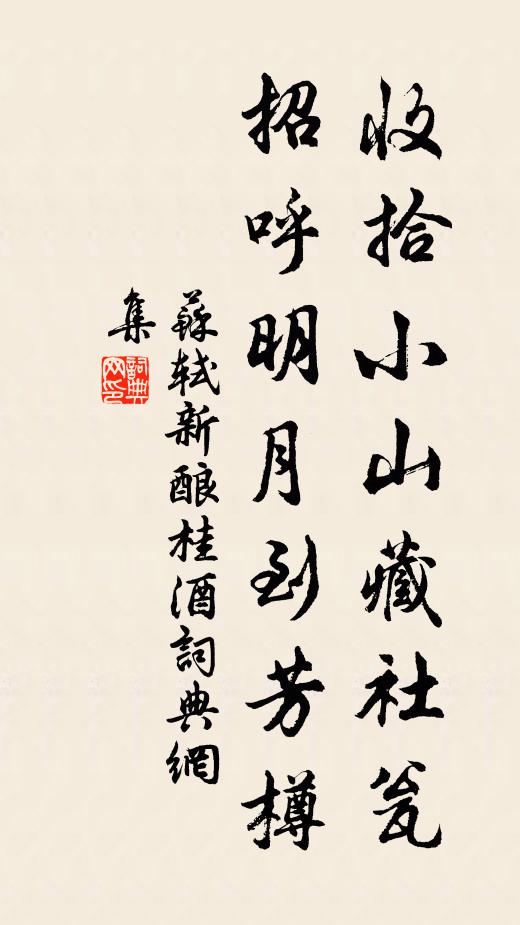 收拾小山藏社瓮
招呼明月到芳樽
蘇軾新酿桂酒詞典網
集
詞典
网印